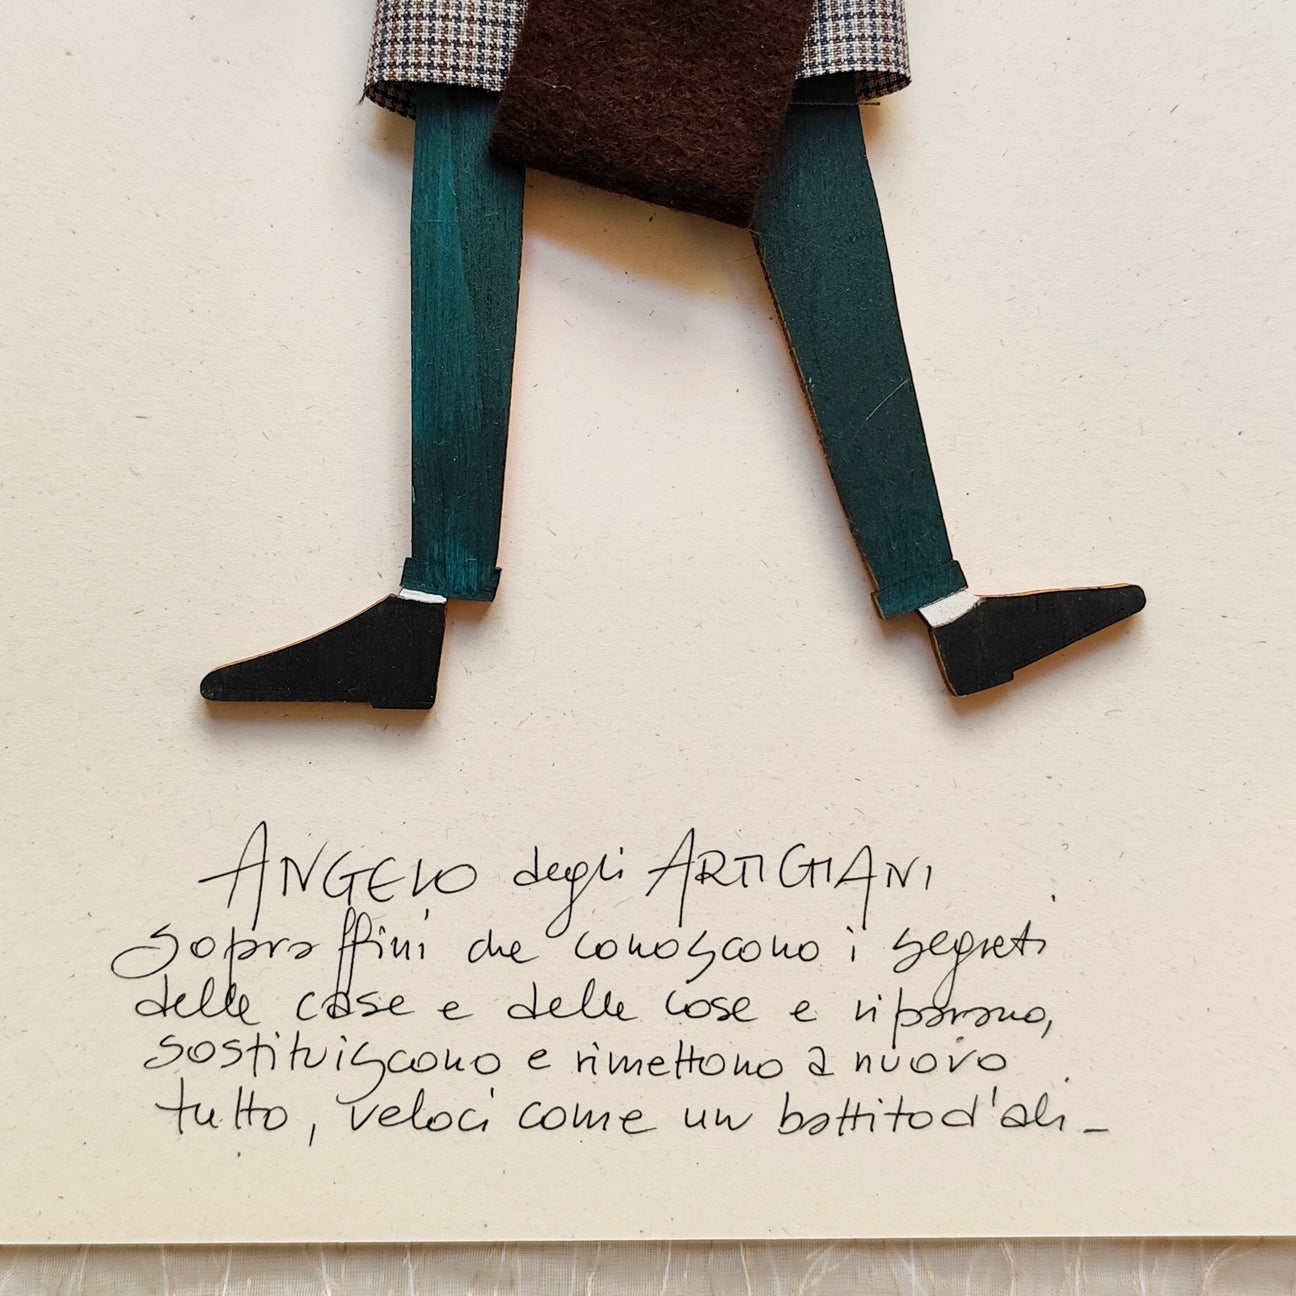 ANGELO degli ARTIGIANI
sopraffini che conoscono i segreti
delle case e delle cose e riparano,
sostituiscono e rimettono a nuovo
tutto, veloci come un battito d'ali_